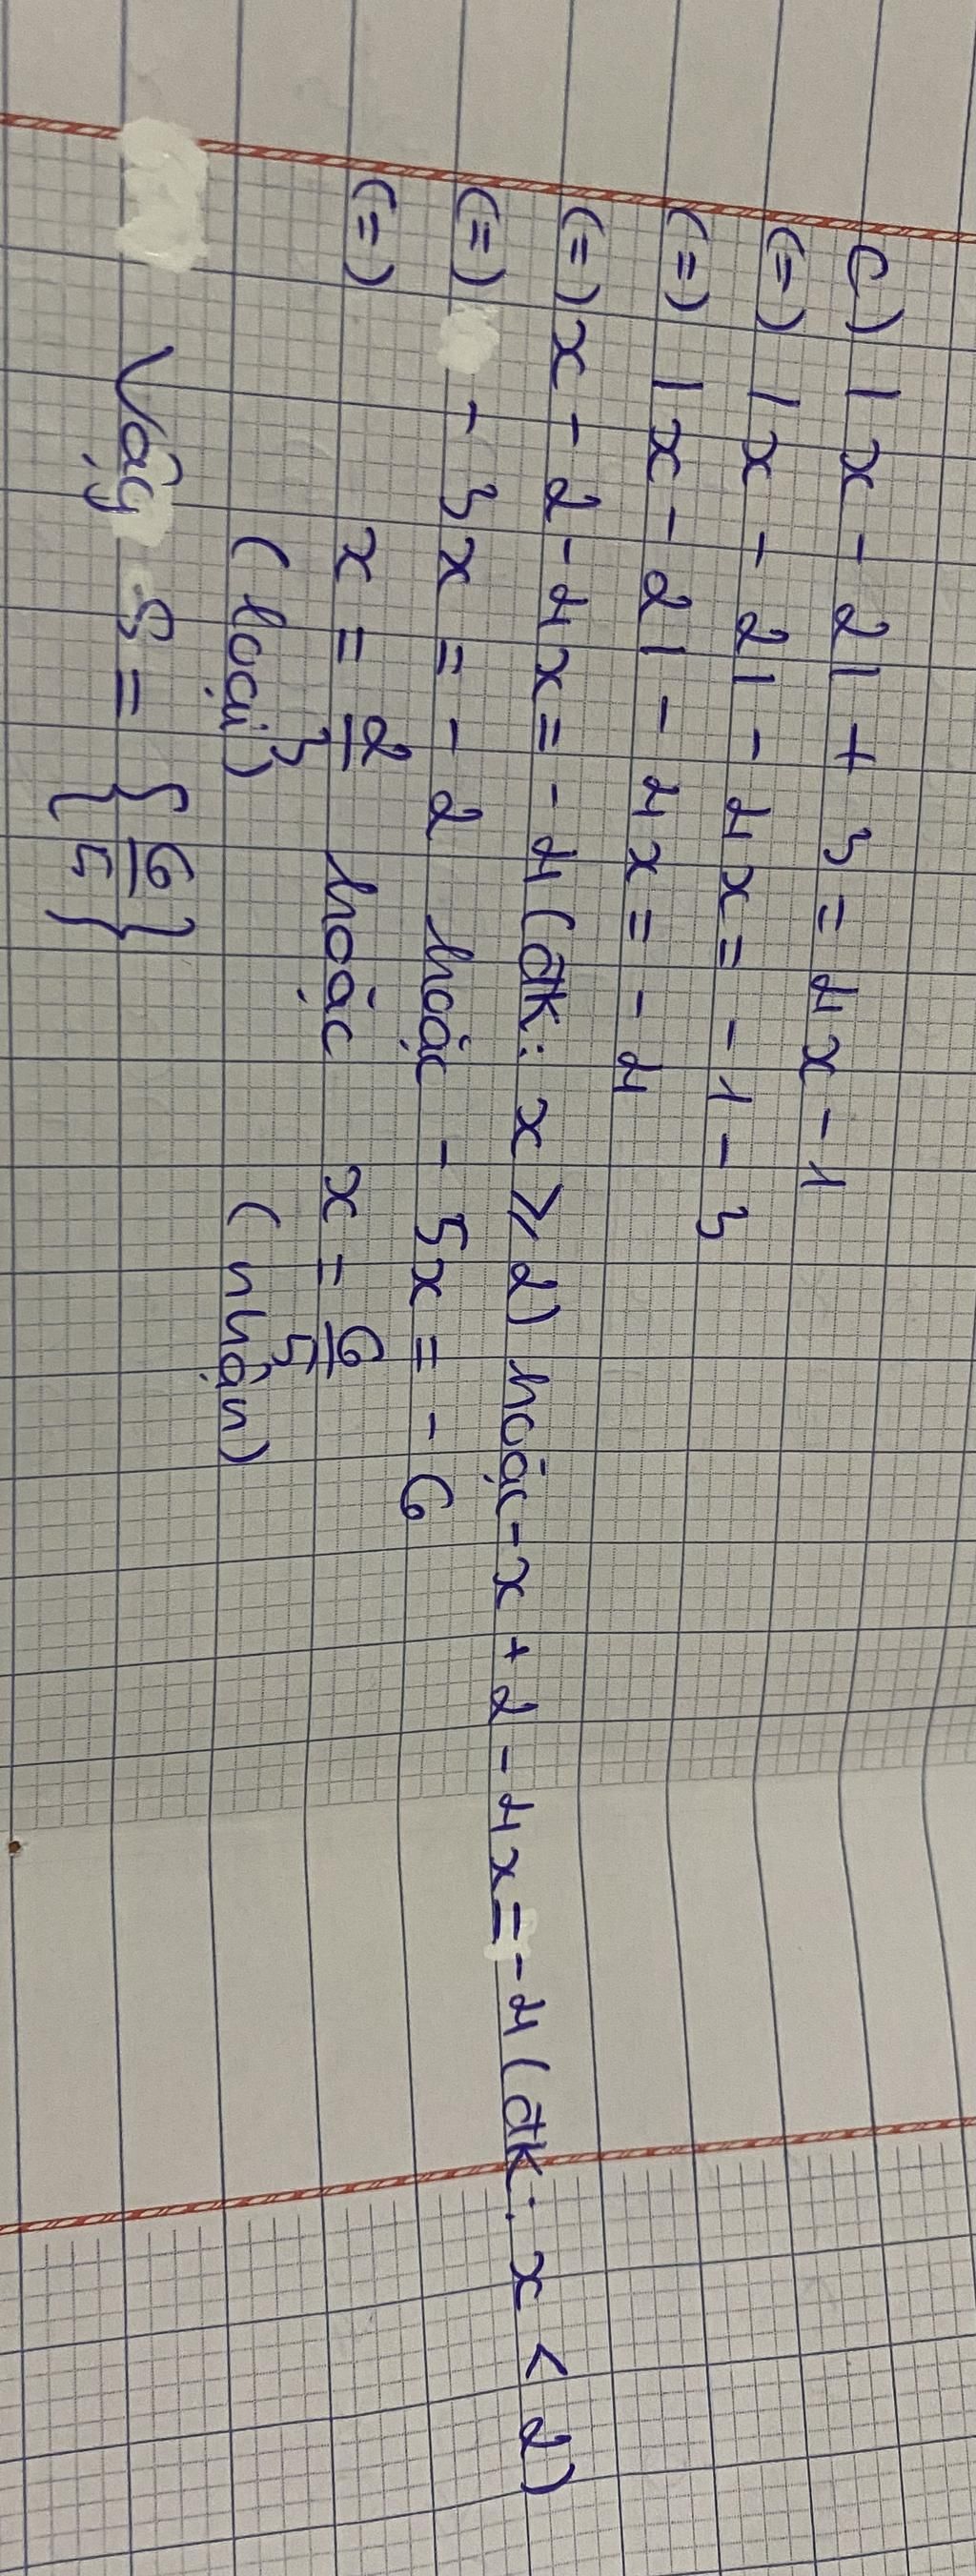 c) |x - 2| + 3 = 4x - 1
(=) |x - 2| - 4x = -1 - 3
(=) |x - 2| - 4x = - 4
(=) x - 2 - 4x = - 4 (đk: x ≥ 2) hoặc -x + 2 - 4x = -4 (đk: x < 2)
(=) - 3x = - 2 hoặc - 5x = - 6
(=) x = 2/3 hoặc x = 6/5
(loại) (nhận)
Vậy S = {6/5}